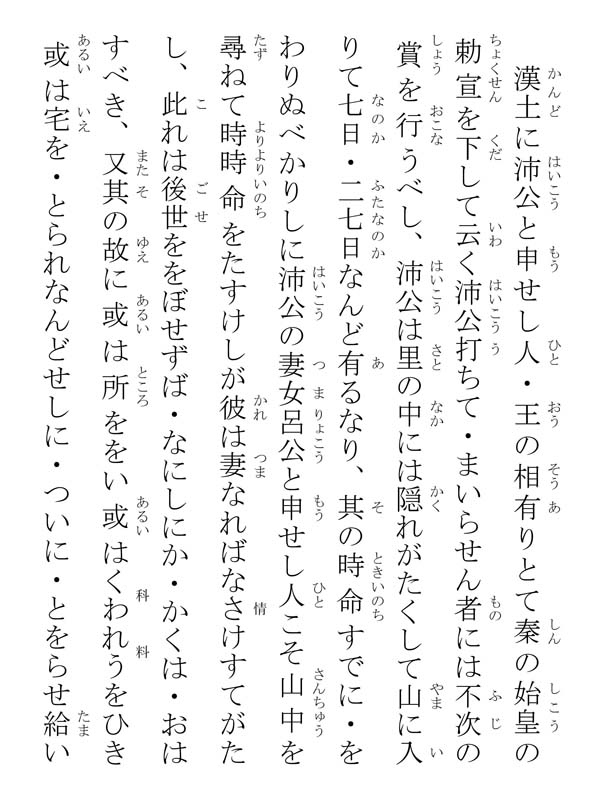 漢土に沛公と申せし人・王の相有りとて秦の始皇の
勅宣を下して云く沛公打ちて・まいらせん者には不次の
賞を行うべし、沛公は里の中には隠れがたくして山に入
りて七日・二七日なんど有るなり、其の時命すでに・を
わりぬべかりしに沛公の妻女呂公と申せし人こそ山中を
尋ねて時時命をたすけしが彼は妻なればなさけすてがた
し、此れは後世ををぼせずば・なにしにか・かくは・おは
すべき、又其の故に或は所ををい或はくわれうをひき
或は宅を・とられなんどせしに・ついに・とをらせ給い